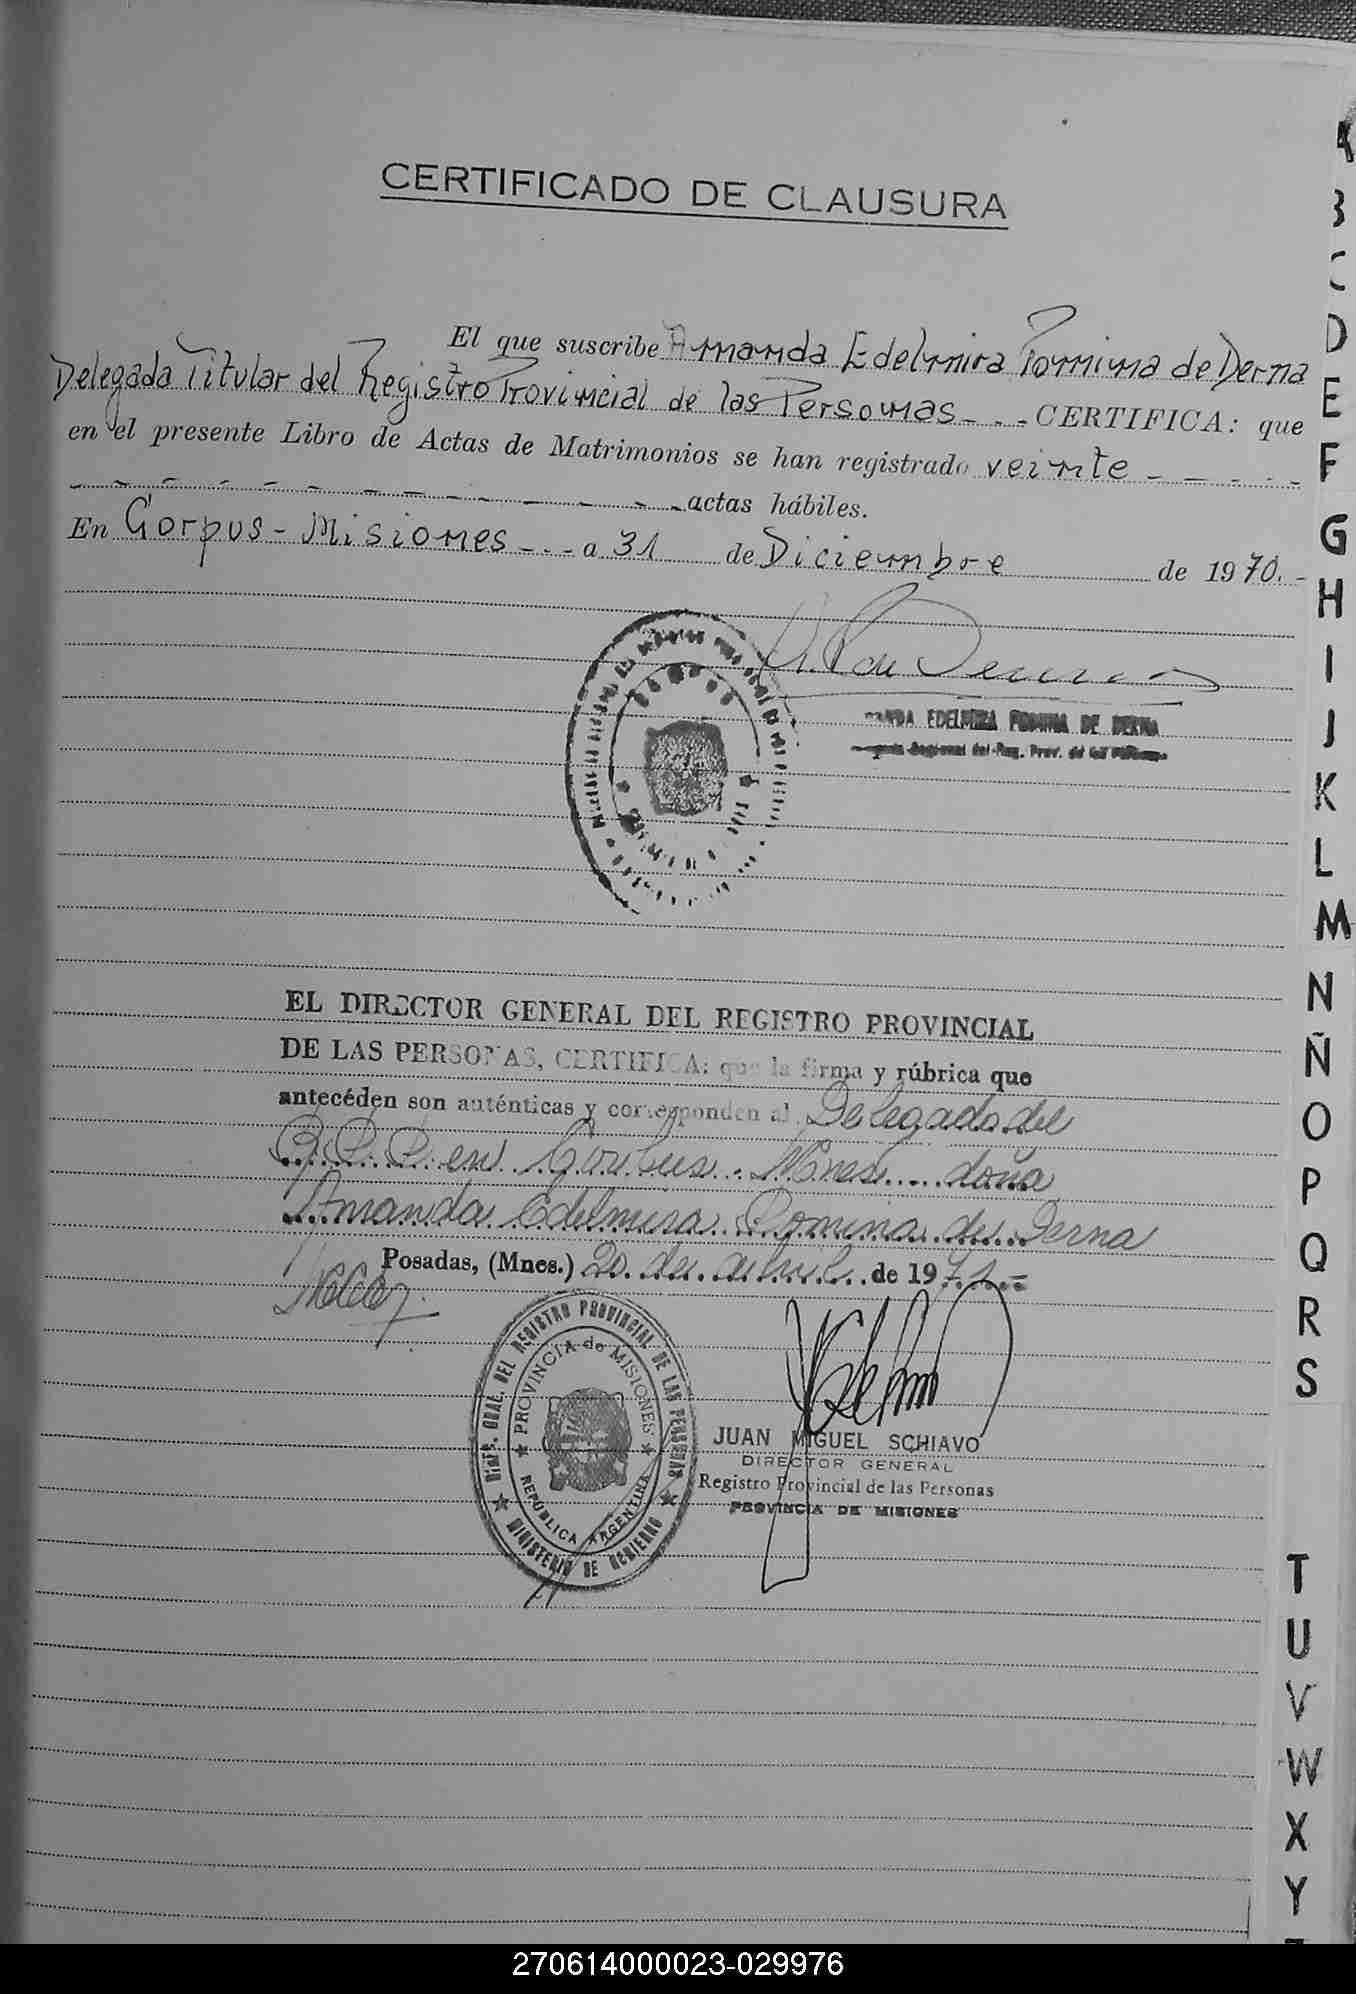 CERTIFICADO DE CLAUSURA
El que suscribe Amanda Edelmira Pomina de Derna
Delegada Titular del Registro Provincial de las Personas - . - CERTIFICA: que
en el presente Libro de Actas de Matrimonios se han registrado veinte - - - - - -
- - - - - - - - - - - - - - - actas hábiles.
En Corpus - Misiones - . - a 31 de Diciembre de 1970. -
CORPUS
EDELMIRA POMINA DE DERNA
Reg. Prov. de las Personas
EL DIRECTOR GENERAL DEL REGISTRO PROVINCIAL
DE LAS PERSONAS, CERTIFICA: que la firma y rúbrica que
antecéden son auténticas y corresponden al Delegada del
R. P. P. en Corpus. Mnes. doña
Amanda Edelmira Pomina de Derna
Posadas, (Mnes.) 20 de abril de 1971.-
DIREC. GRAL. DEL REGISTRO PROVINCIAL DE LAS PERSONAS
PROVINCIA de MISIONES
REPUBLICA ARGENTINA
MINISTERIO DE GOBIERNO
JUAN MIGUEL SCHIAVO
DIRECTOR GENERAL
Registro Provincial de las Personas
PROVINCIA DE MISIONES
A
B
C
D
E
F
G
H
I
J
K
L
M
N
Ñ
O
P
Q
R
S
T
U
V
W
X
Y
270614000023-029976